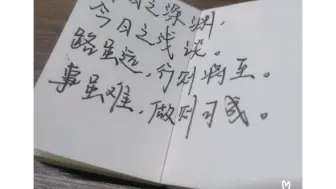 之深渊，
今日之浅谈。
路虽远，行则将至。
事虽难，做则可成。